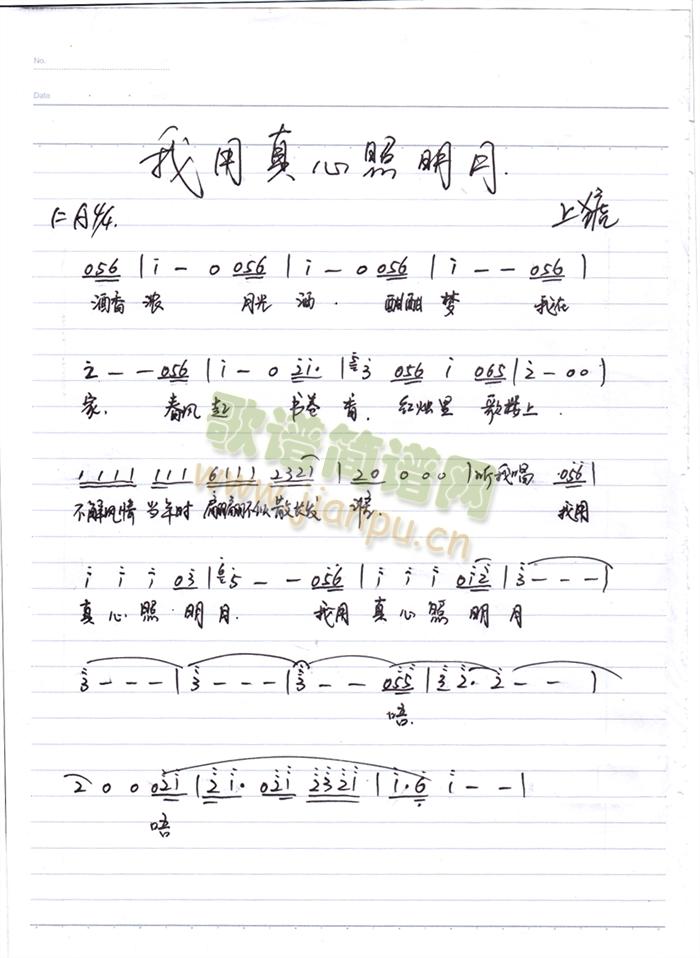 No.
Date
我用真心照明月.
1=A 4/4.
056 | i - 0 056 | i - 0 056 | i - - 056 |
酒香浓 月光 洒. 酣酣梦 我在
2 - - 056 | i - 0 2i· | 3 056 i 065 | 2 - 0 0 |
家. 春风起 书卷香. 红烛里 歌楼上.
1111 111 6111 2321 | 20 0 0 0 | 听我唱 056 |
不解风情 当年时 翩翩不似散长发 谁. 我用
i i i 03 | 5 - - 056 | i i i 0i2 | 3 - - - |
真心照 明月. 我用真心照 明月
3 - - - | 3 - - - | 3 - - 055 | 3 2· 2 - - |
唔.
2 0 0 02i | 2i· 02i 232i | i·6 i - - |
唔
歌谱简谱网
www.jianpu.cn